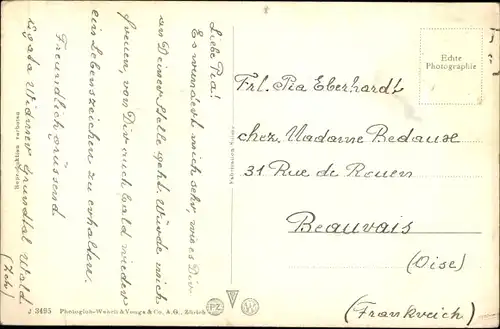 Liebe Pia!
Es wundert mich sehr, wie es Dir
an Deiner Stelle geht. Würde mich
freuen, von Dir auch bald wieder
ein Lebenszeichen zu erhalten.
Freundlich grüssend
Widmer Grundtal Wald
(Zch.)
Echte
Photographie
Frl. Pia Eberhardt
chez. Madame Bedaux
31 Rue de Rouen
Beauvais
(Oise)
(Frankreich)
J 3495 Photoglob-Wehrli & Vouga & Co., A.G., Zürich
PZ